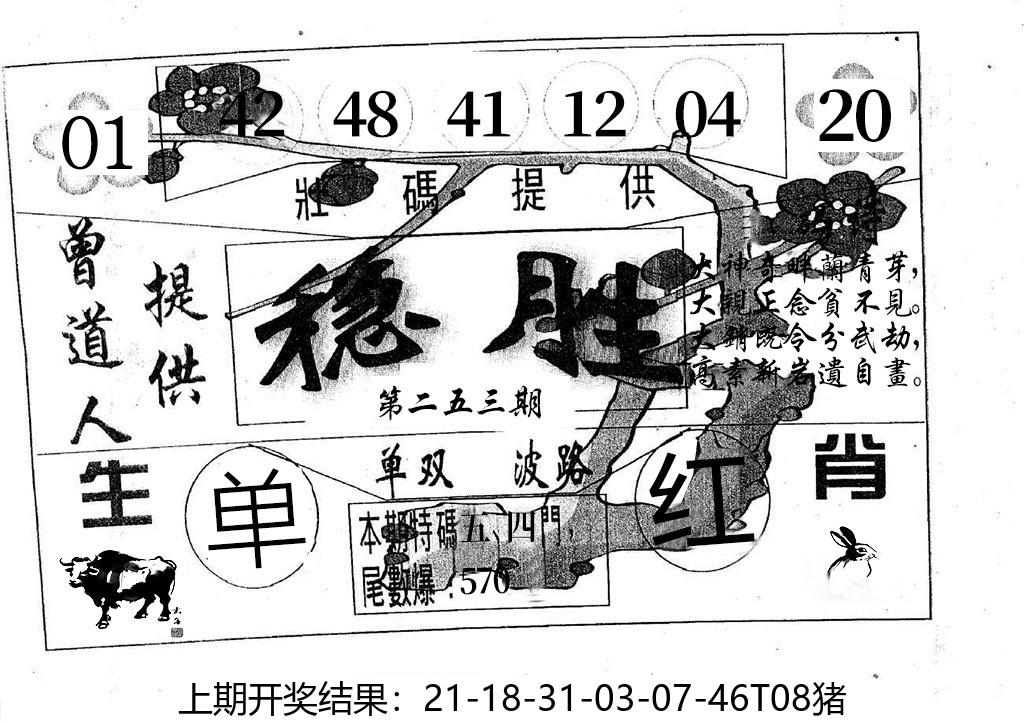 01 42 48 41 12 04 20
壯碼提供
特
曾道人
提供
稳胜
大神奇畔蘭青芽，
大觀正念貧不見。
大銷既令分武劫，
高素新岩遺自畫。
第二五三期
单双 波路
生 单 红 肖
本期特碼五、四門，
尾數爆：570
上期开奖结果：21-18-31-03-07-46T08猪